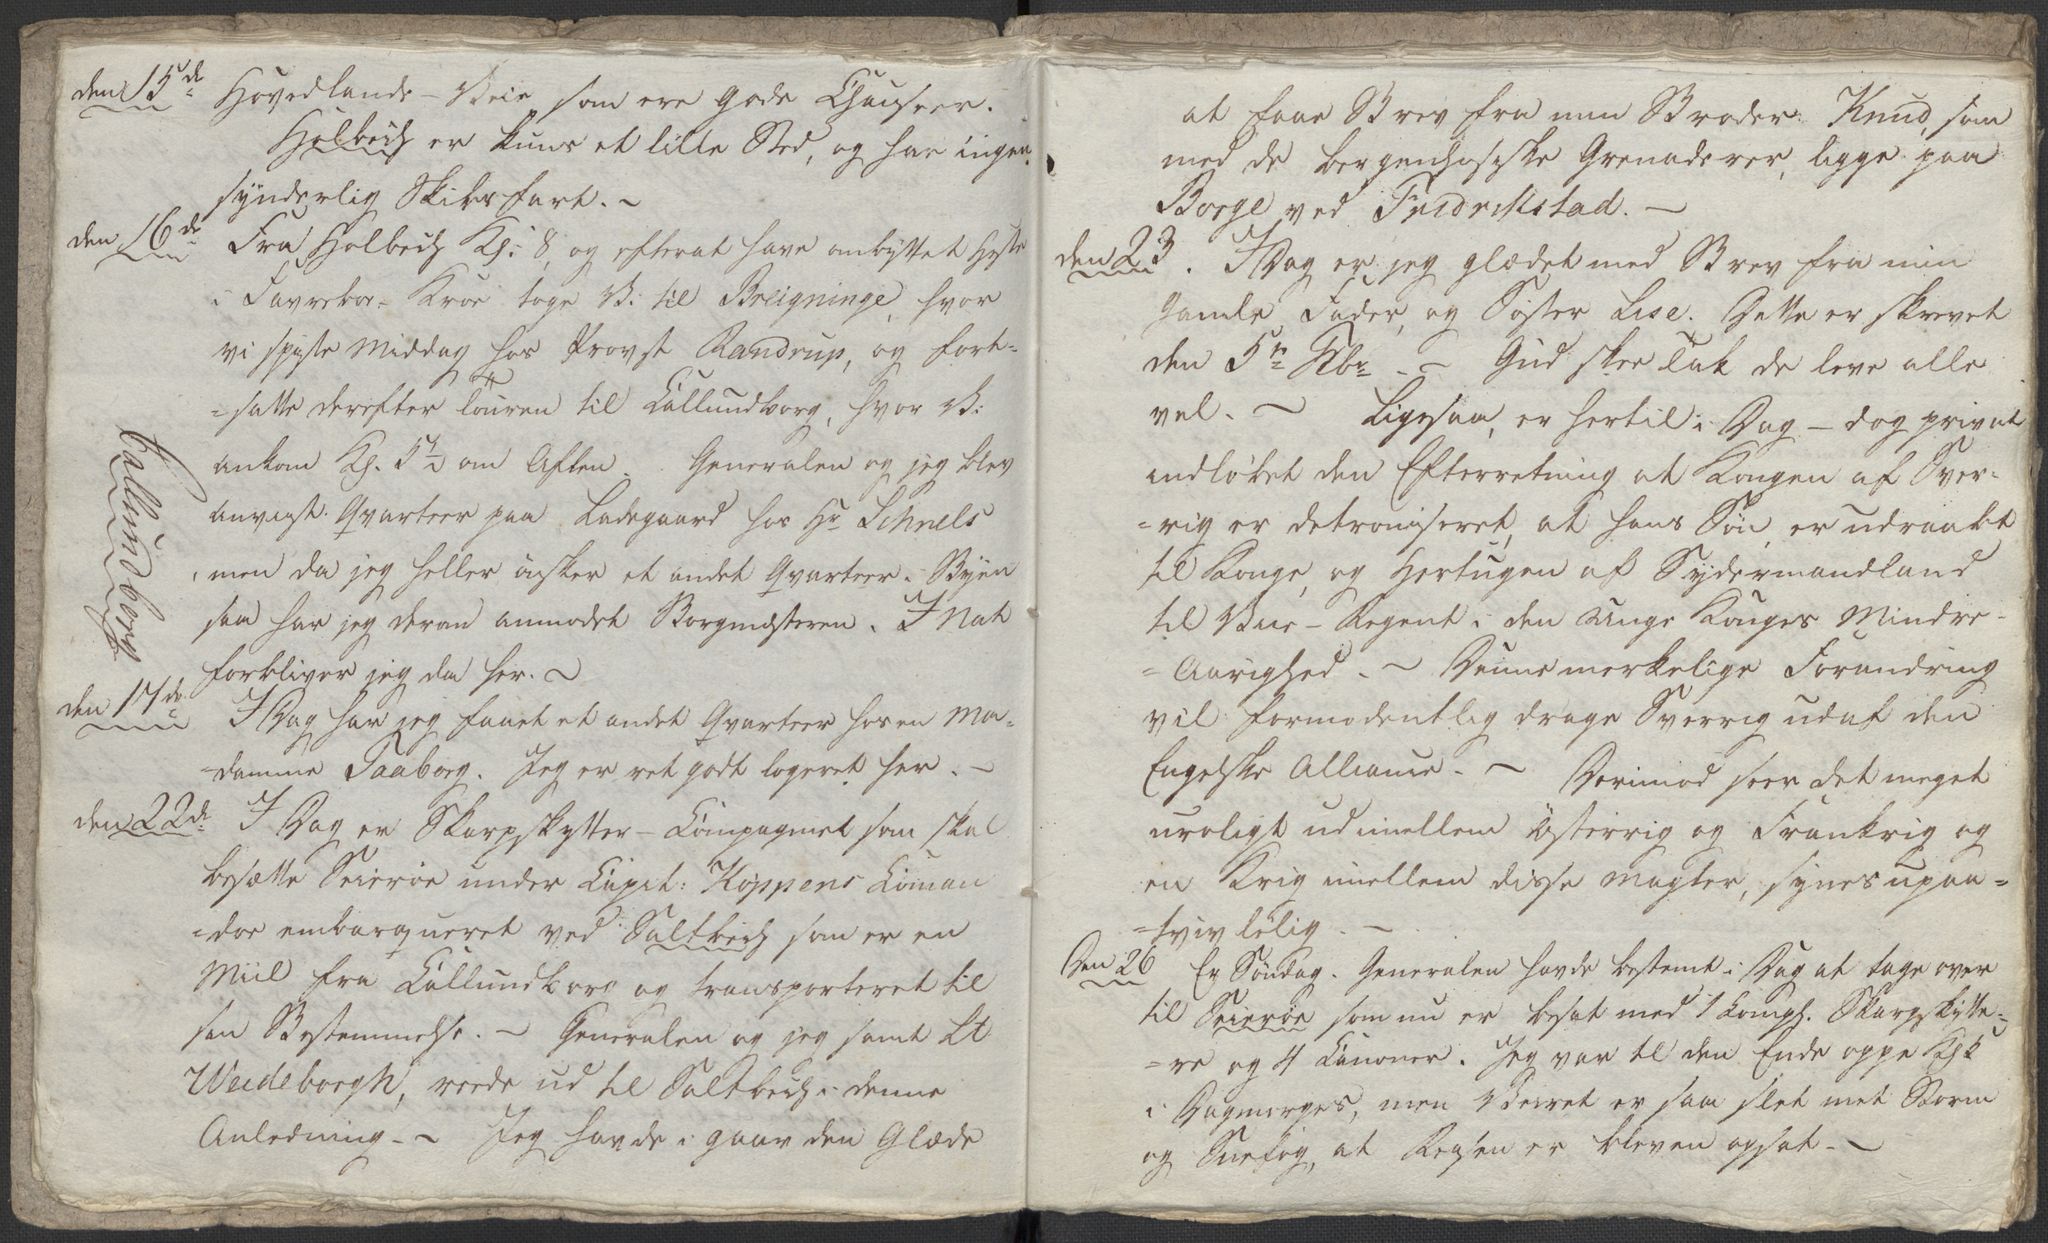 den 15de Hovedlande-Veie som ere gode Chauseer.
Holbech er kuns et lille Sted, og har ingen
synderlig Skibsfart. ~
den 16de Fra Holbech Kl: 8, og efterat have ombyttet Heste
i Favrebor- Kroe toge V. til Breigninge, hvor
vi spiste Middag hos Provst Randrup, og fort-
=satte derefter Touren til Callundborg, hvor V:
ankom Kl. 5½ om Aften. Generalen og jeg blev
anviist Qvarteer paa Ladegaard hos Hr Schnels
men da jeg heller ønsker et andet Qvarteer i Byen
saa har jeg derom anmodet Borgmesteren. I Nat
forbliver jeg da her. ~
Callundborg
den 17de I Dag har jeg faaet et andet Qvarteer hos en Ma-
=damme Faaborg. Jeg er ret godt logeret her. ~
den 22de I Dag er Skarpskytter-Compagniet som skal
besætte Seierøe under Capit: Koppens Coman
=doe embarqueret ved Saltbech som er en
Miil fra Callundborg og transporteret til
sin Bestemmelse. ~ Generalen og jeg samt Lt
Weideborgh, reede ud til Saltbech i denne
Anledning. ~ Jeg havde i gaar den Glæde
at faae Brev fra min Broder Knud, som
med de bergenhusiske Grenaderer, ligge paa
Borge ved Fredrikstad. ~
den 23. I Dag er jeg glædet med Brev fra min
Gamle Fader, og Søster Lise. Dette er skrevet
den 5te Febr. ~ Gud skee Tak de leve alle
vel. ~ Ligesaa, er hertil i Dag - dog privat
indløbet den Efterretning at Kongen af Sver-
=rig er detroniseret, at hans Søn er udraabt
til Konge, og Hertugen af Sydermandland
til Viie-Regent i den unge Konges Mindre-
=Aarighed. ~ Denne merkelige Forandring
vil formodentlig drage Sverrig ud af den
Engelske Alliance. ~ Derimod seer det meget
uroligt ud imellem Østerrig og Frankrig og
en Krig imellem disse Magter, synes upaa=
=tvivlelig. ~
Den 26 Er Søndag. Generalen havde bestemt i Dag at tage over
til Seierøe som nu er besat med 1 Comp. Skarpskytte=
=re og 4 Canoner. Jeg var til den Ende oppe Kl 5
i Dagmorges, men Veiret er saa slet met Storm
og Sneefog, at Reisen er bleven opsat. ~